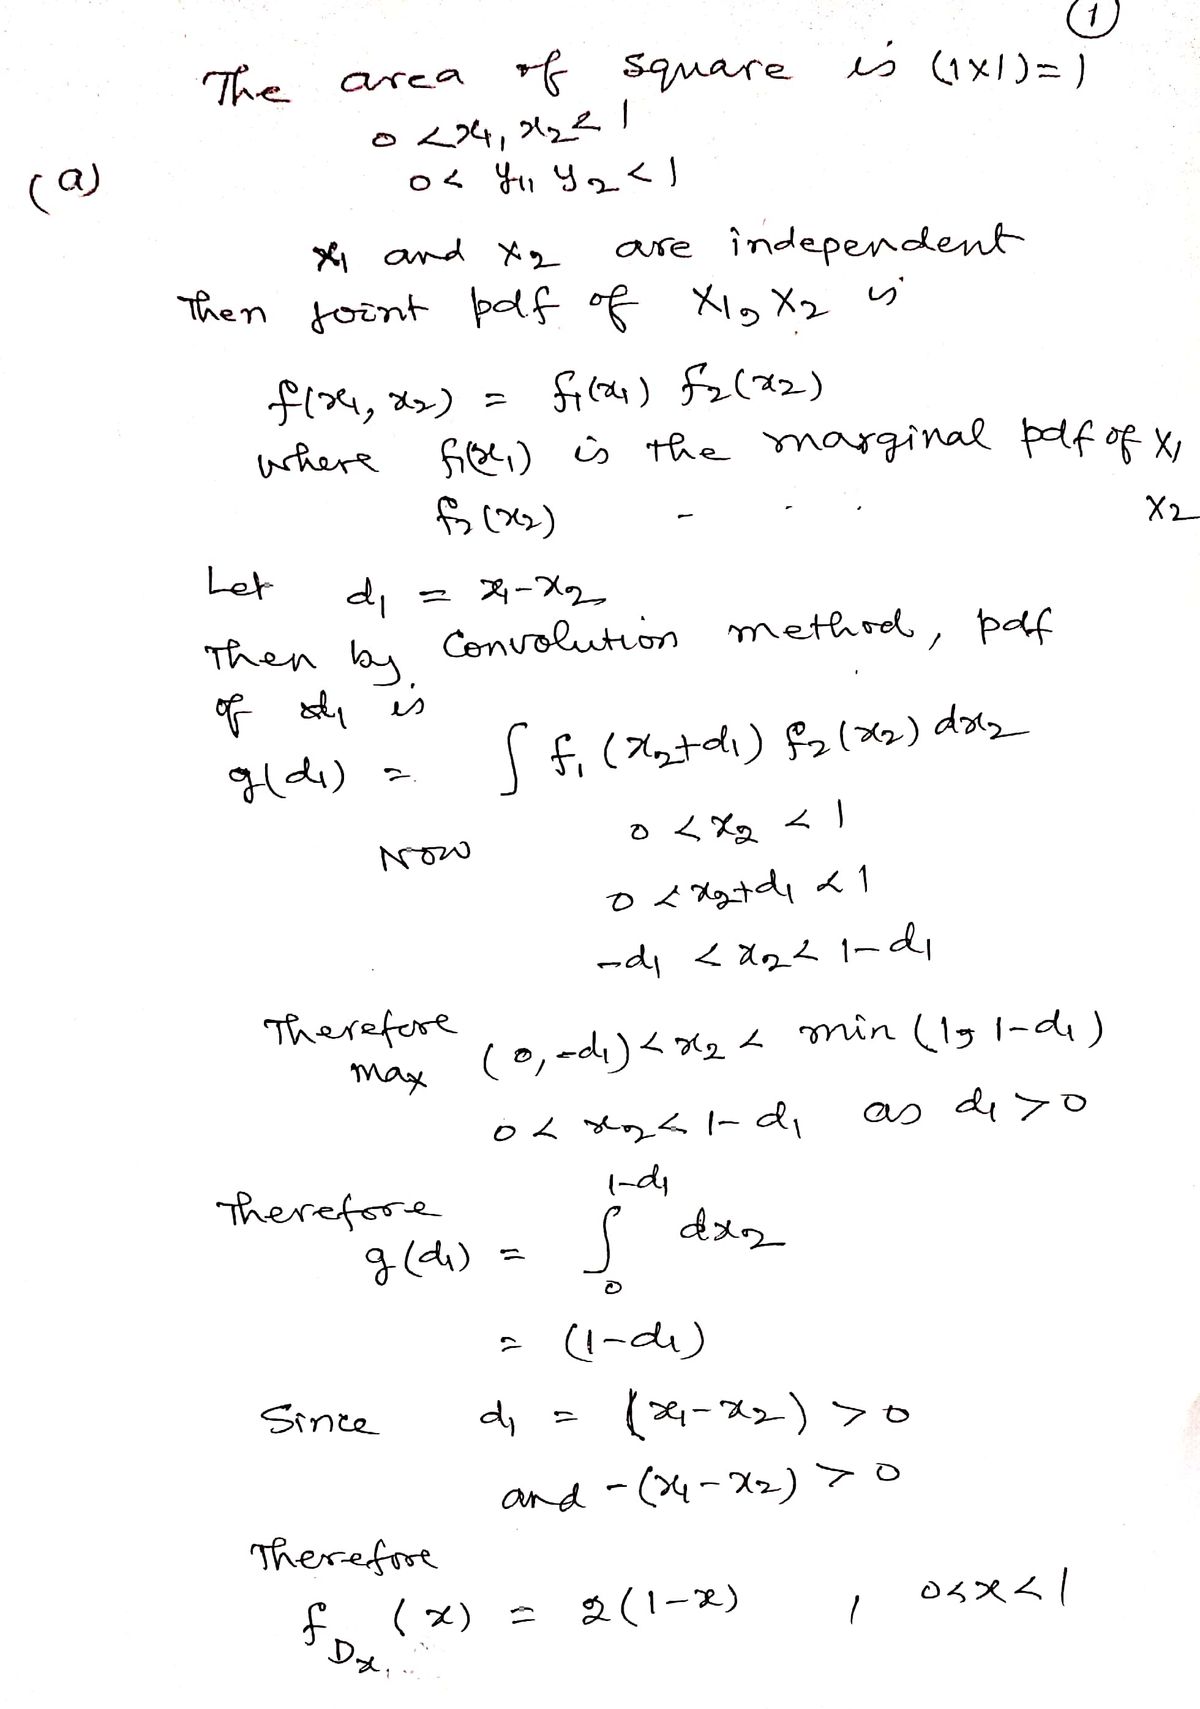 1
The area of square is (1×1)=1
0 < x1, x2 < 1
(a) 0 < y1, y2 < 1
x1 and x2 are independent
Then joint pdf of X1, X2 is
f(x1, x2) = f1(x1) f2(x2)
where f1(x1) is the marginal pdf of X1
f2(x2) - . . X2
Let d1 = x1-x2
Then by convolution method, pdf
of d1 is
g(d1) = ∫ f1(x2+d1) f2(x2) dx2
Now 0 < x2 < 1
0 < x2+d1 < 1
-d1 < x2 < 1-d1
Therefore
max (0, -d1) < x2 < min (1, 1-d1)
0 < x2 < 1-d1 as d1 > 0
Therefore
g(d1) = ∫_0^{1-d1} dx2
= (1-d1)
Since d1 = (x1-x2) > 0
and -(x1-x2) > 0
Therefore
f_{Dx} (x) = 2(1-x) , 0<x<1